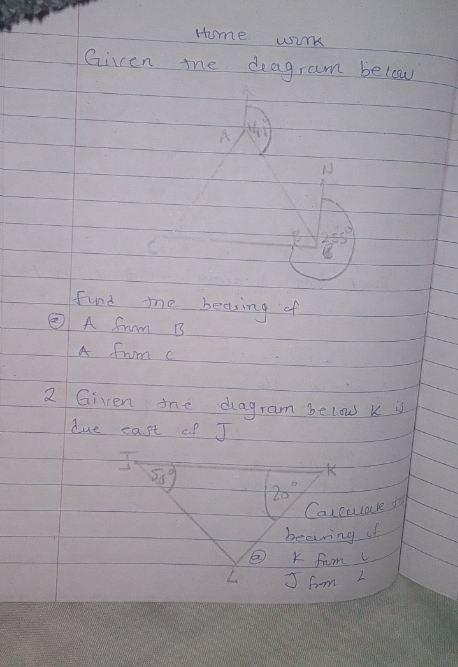 Home work
Given the diagram below
N
A
B
C
255°
Find the bearing of
a A from B
A from C
2 Given the diagram below K is
due east of J
J 55° K
20°
Calculate
bearing of
a K from L
L J from L